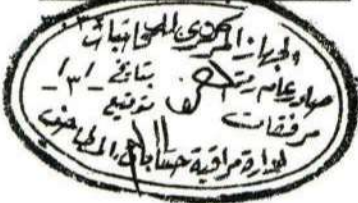 الجهاز المركزى للمحاسبات
صادر عام رقم بتاريخ / / ١٣
مرفقات توقيع
إدارة مراقبة حسابات